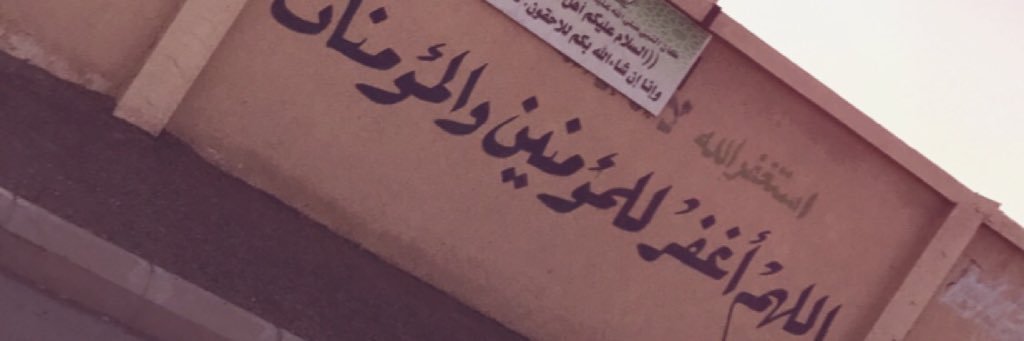 السلام عليكم أهل
وإنا إن شاء الله بكم للاحقون
استغفر الله
اللهمُ أغفرُ للمؤمنين والمؤمنات